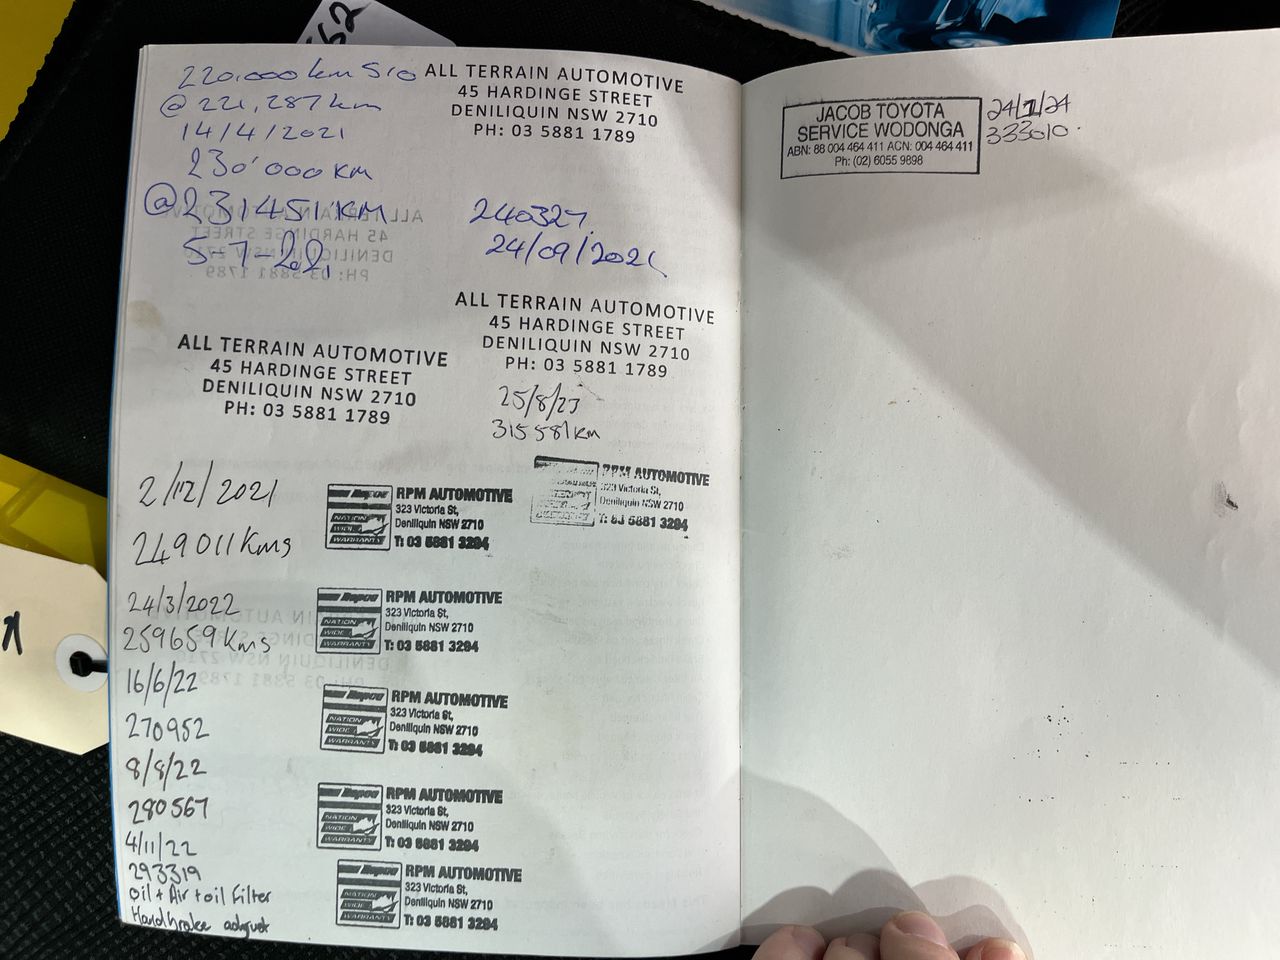 220,000km S/O
@ 221,287km
14/4/2021
ALL TERRAIN AUTOMOTIVE
45 HARDINGE STREET
DENILIQUIN NSW 2710
PH: 03 5881 1789
230'000 KM
@231451 KM
5-7-2021
240327
24/09/2021
ALL TERRAIN AUTOMOTIVE
45 HARDINGE STREET
DENILIQUIN NSW 2710
PH: 03 5881 1789
ALL TERRAIN AUTOMOTIVE
45 HARDINGE STREET
DENILIQUIN NSW 2710
PH: 03 5881 1789
25/8/23
315581km
2/12/2021
249011 Kms
Repco
NATION
WIDE
WARRANTY
RPM AUTOMOTIVE
323 Victoria St,
Deniliquin NSW 2710
T: 03 5881 3294
RPM AUTOMOTIVE
323 Victoria St,
Deniliquin NSW 2710
T: 03 5881 3294
24/3/2022
259659 Kms
Repco
NATION
WIDE
WARRANTY
RPM AUTOMOTIVE
323 Victoria St,
Deniliquin NSW 2710
T: 03 5881 3294
16/6/22
270952
Repco
NATION
WIDE
WARRANTY
RPM AUTOMOTIVE
323 Victoria St,
Deniliquin NSW 2710
T: 03 5881 3294
8/8/22
280567
Repco
NATION
WIDE
WARRANTY
RPM AUTOMOTIVE
323 Victoria St,
Deniliquin NSW 2710
T: 03 5881 3294
4/11/22
293319
Oil + Air + oil Filter
Handbrake adjust
Repco
NATION
WIDE
WARRANTY
RPM AUTOMOTIVE
323 Victoria St,
Deniliquin NSW 2710
T: 03 5881 3294
JACOB TOYOTA
SERVICE WODONGA
ABN: 88 004 464 411 ACN: 004 464 411
Ph: (02) 6055 9898
24/1/24
333010